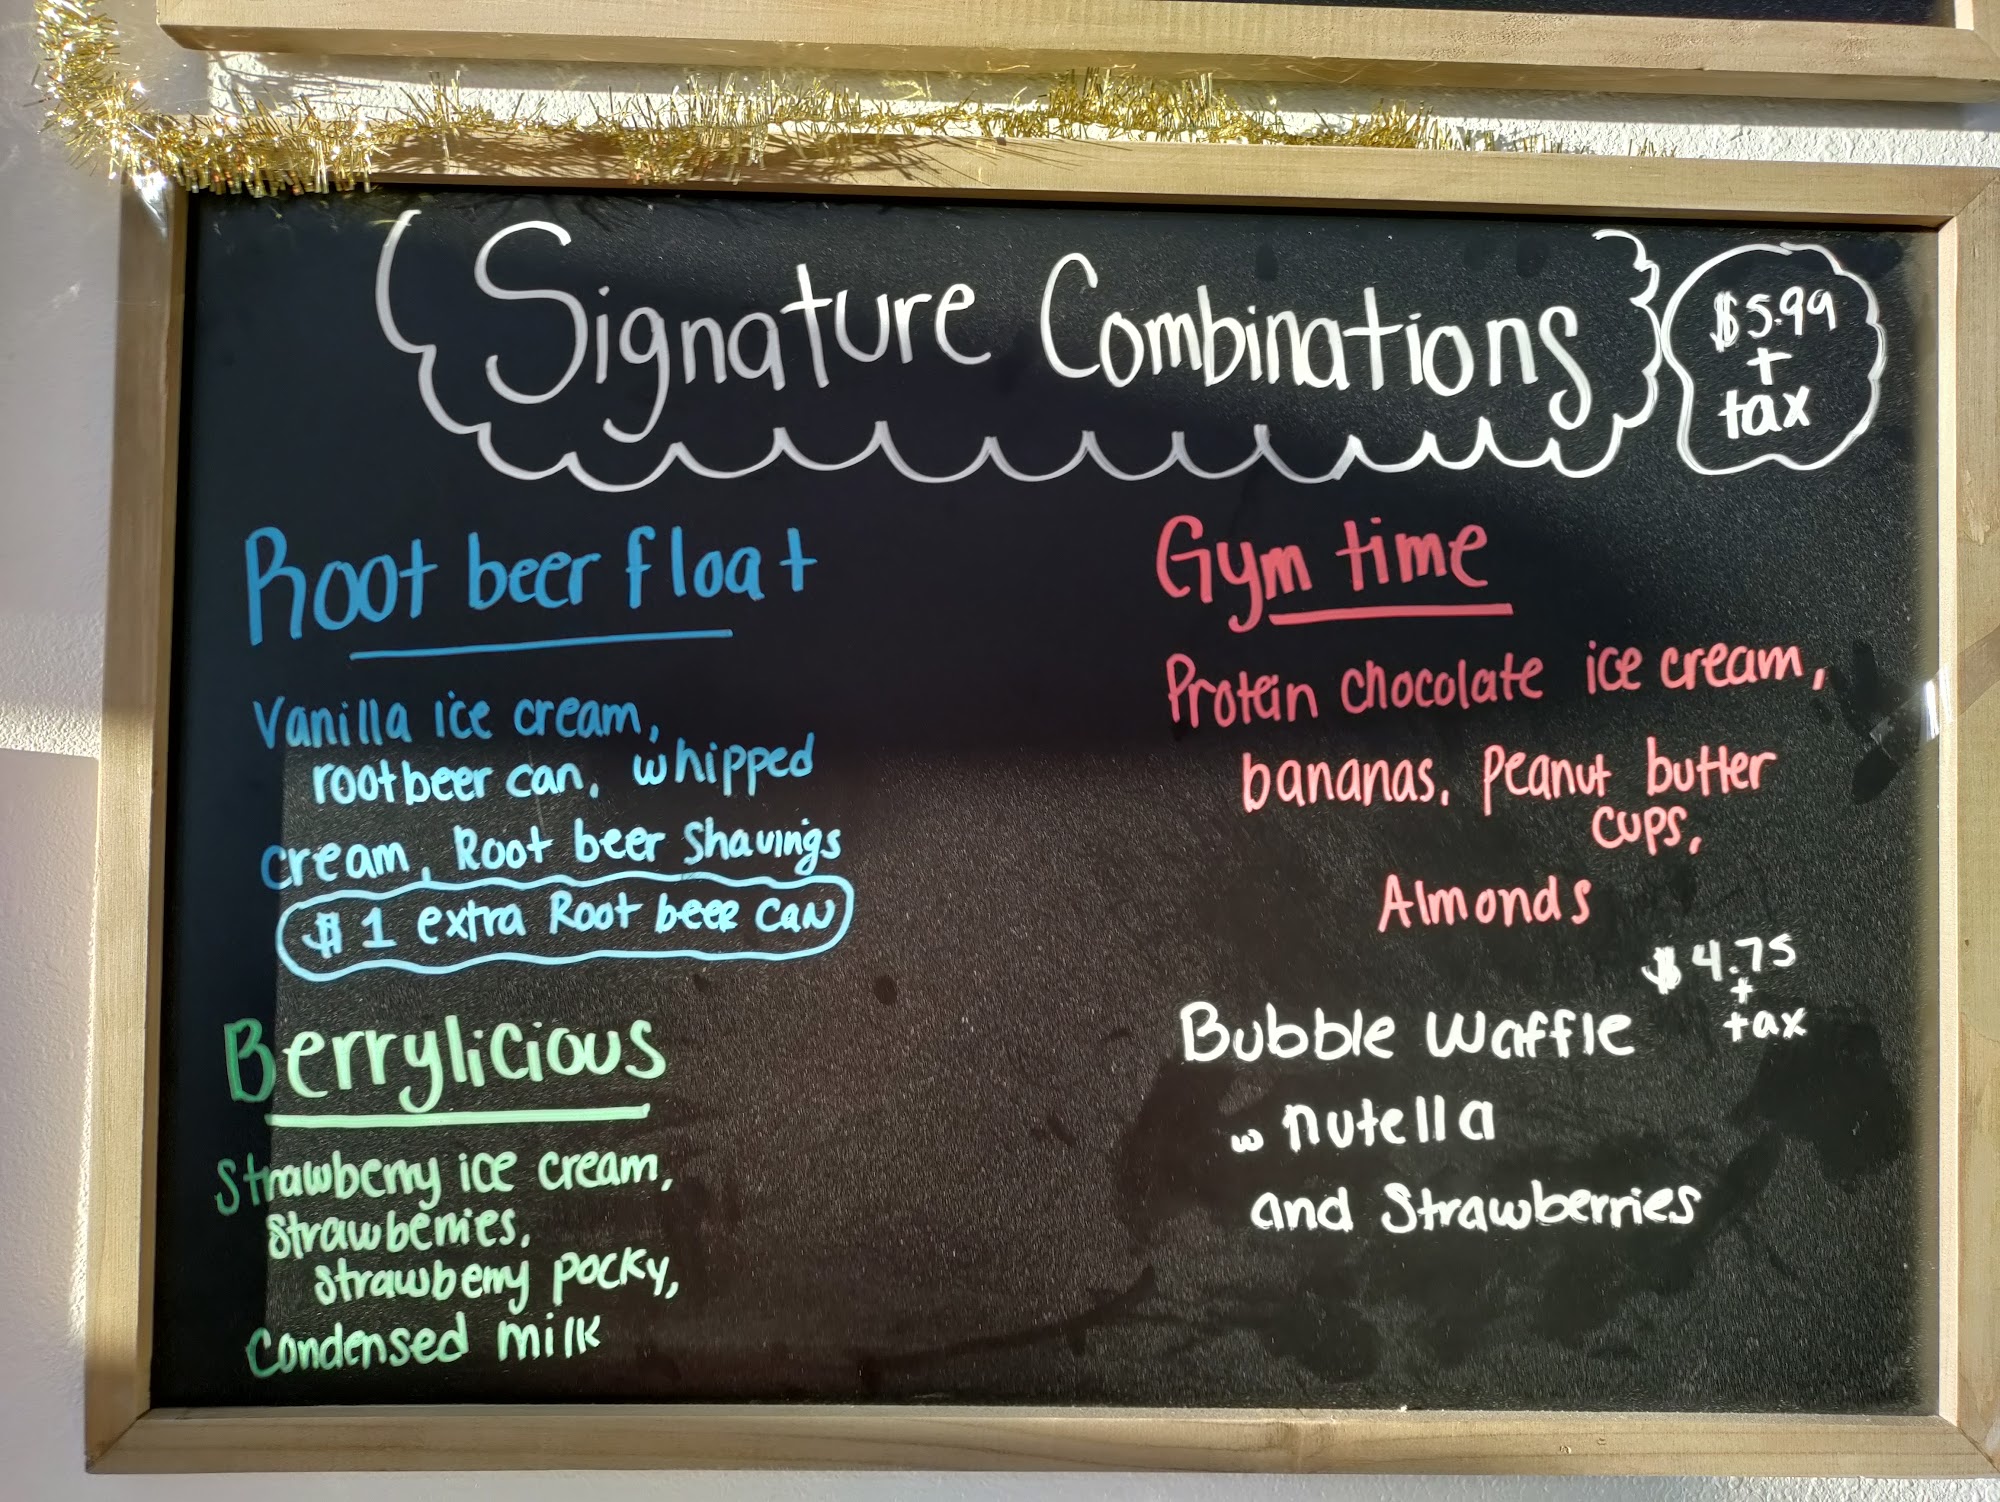 Signature Combinations
$5.99
+
tax
Root beer float
Vanilla ice cream,
rootbeer can, whipped
cream, Root beer Shavings
$1 extra Root beer can
Berrylicious
Strawberry ice cream,
strawberries,
strawberry pocky,
Condensed milk
Gym time
Protein chocolate ice cream,
bananas, Peanut butter
cups,
Almonds
$4.75
+
tax
Bubble Waffle
w nutella
and Strawberries